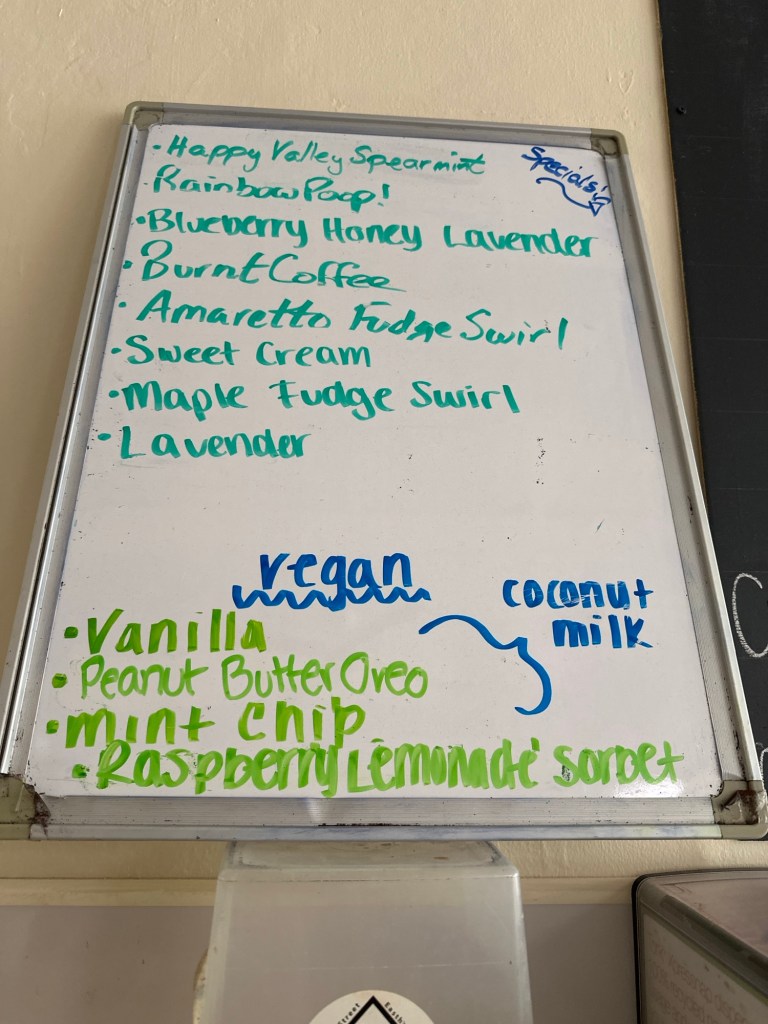 Specials!
• Happy Valley Spearmint
Rainbow Poop!
• Blueberry Honey Lavender
• Burnt Coffee
• Amaretto Fudge Swirl
• Sweet Cream
• Maple Fudge Swirl
• Lavender
vegan
coconut
milk
• Vanilla
• Peanut Butter Oreo
• mint chip
• Raspberry Lemonade sorbet
Street